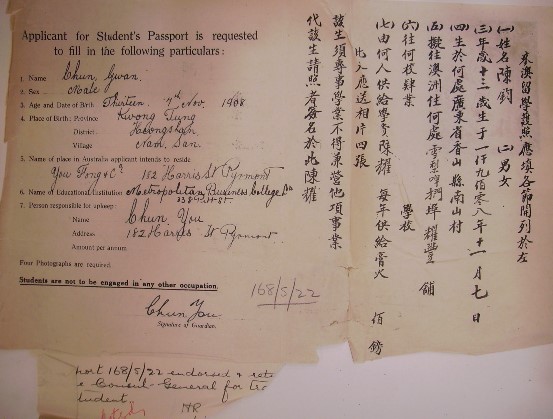 Applicant for Student's Passport is requested
to fill in the following particulars :
1. Name Chun Gwan.
2. Sex Male
3. Age and Date of Birth Thirteen. 7th Nov. 1908
4. Place of Birth: Province Kwong Tung
District Heongshan
Village Nam San
5. Name of place in Australia applicant intends to reside
You Fong & Co. 182 Harris St Pyrmont
6. Name of Educational Institution Metropolitan Business College
7. Person responsible for upkeep:
Name Chun You
Address 182 Harris St Pyrmont
Amount per annum
Four Photographs are required.
Students are not to be engaged in any other occupation.
168/5/22
Chun You
Signature of Guardian.
port 168/5/22 endorsed &
e Consul-General for
tudent.
來澳留學護照應填各節開列於左
(一)姓名陳鈞 (二)男女
(三)年歲十三歲生于一仟九佰零八年十一月七日
(四)生於何處廣東省香山縣南山村
(五)擬往澳洲住何處雪梨 埠耀豐舖
(六)往何校肄業 學校
(七)由何人供給學費陳耀 每年供給膏火 佰鎊
此人應送相片四張
該生須專事學業不得兼營他項事業
代該生請照者簽名於此陳耀